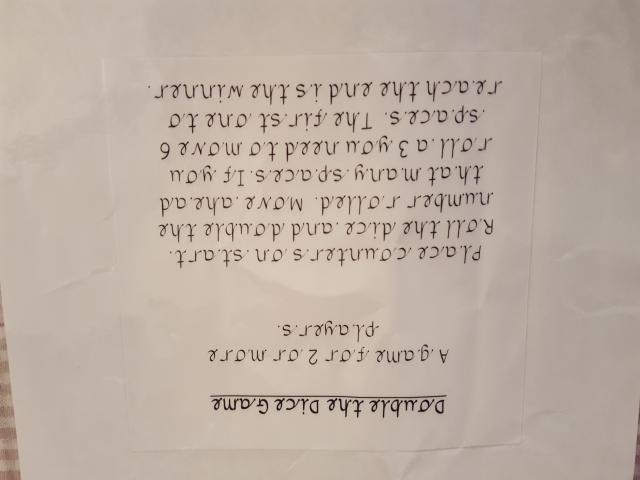 Double the Dice Game
A game for 2 or more
players.
Place counters on start.
Roll the dice and double the
number rolled. Move ahead
that many spaces. If you
roll a 3 you need to move 6
spaces. The first one to
reach the end is the winner.